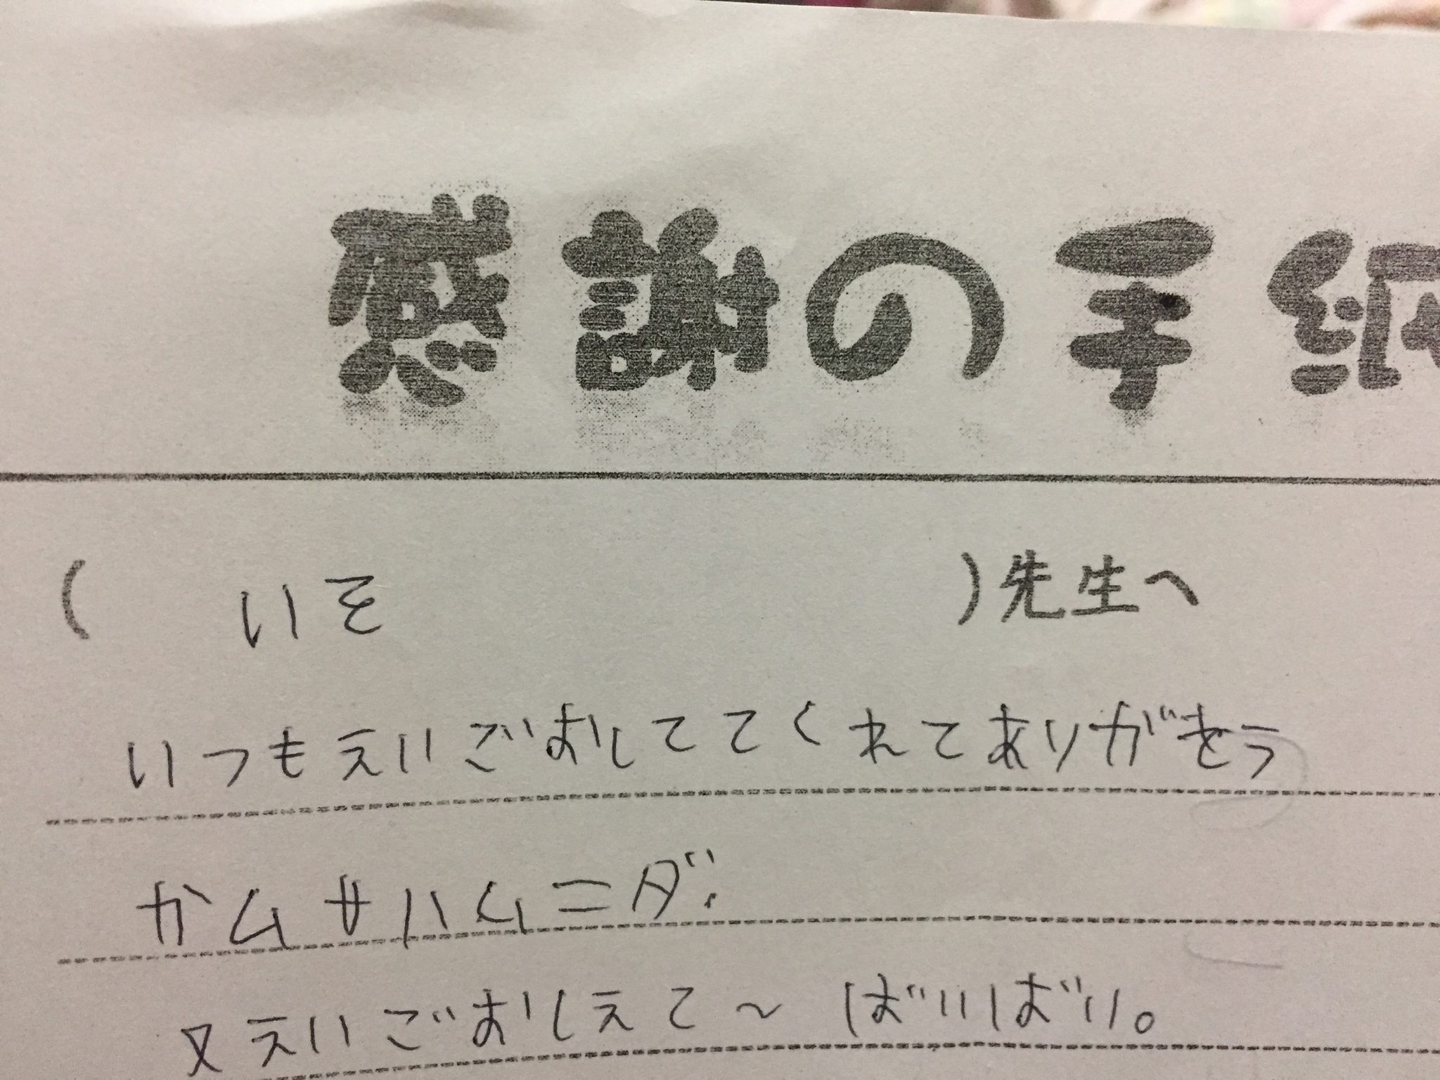 感謝の手紙
( いそ )先生へ
いつもえいごおしててくれてありがとう
カムサハムニダ。
又えいごおしえて〜ばいばい。